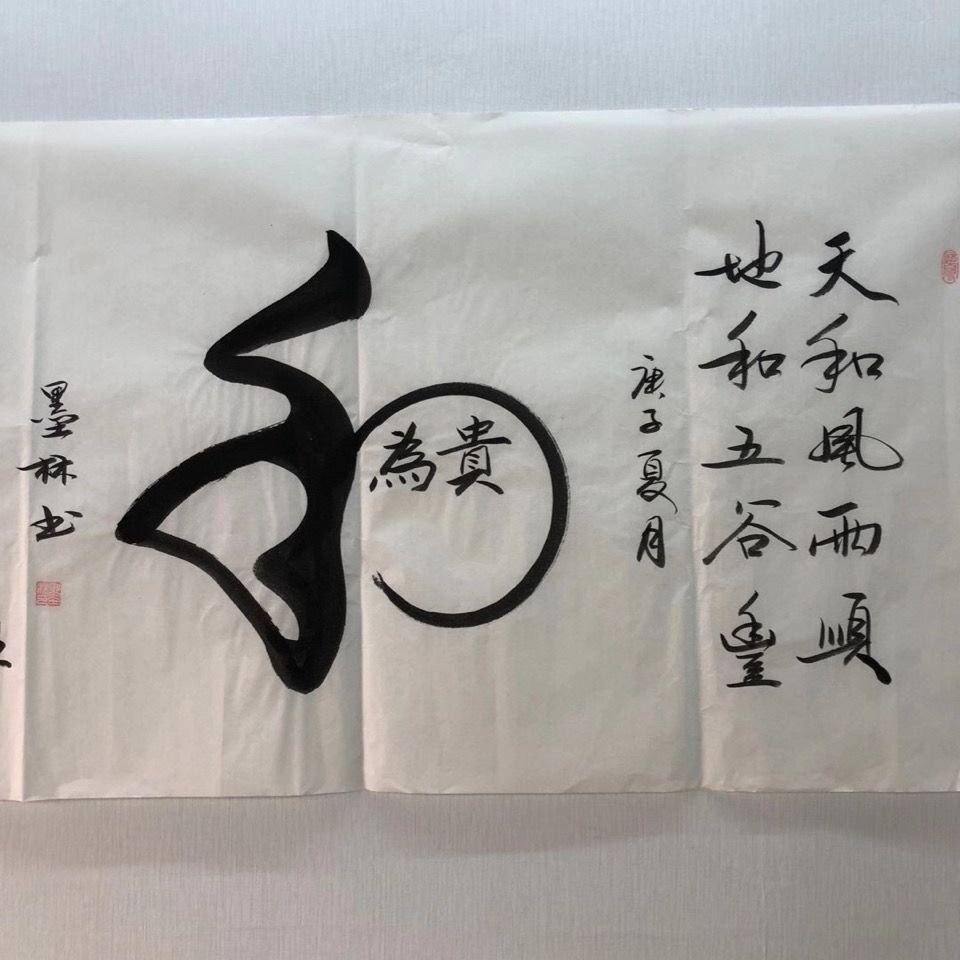 天和風雨順
地和五谷豐
庚子夏月
和
貴為
墨林书